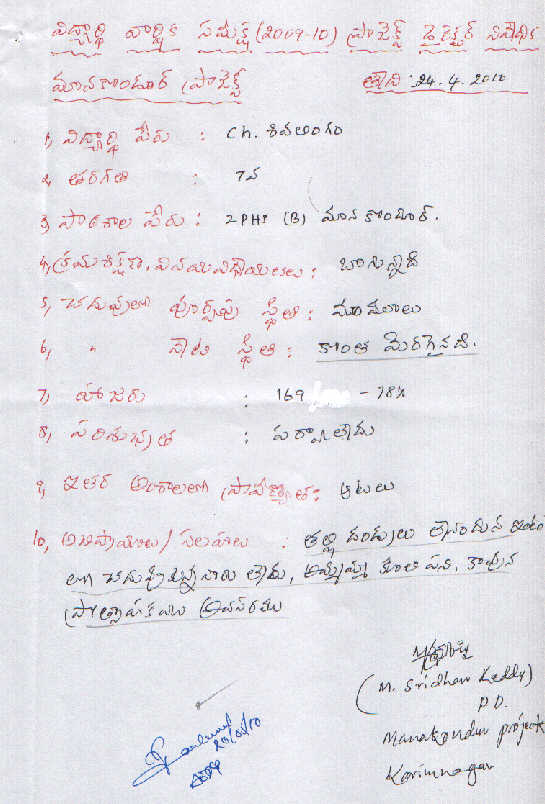 విద్యార్థి వార్షిక సమీక్ష (2009-10) ప్రాజెక్ట్ డైరెక్టర్ నివేదిక
మానకొండూర్ ప్రాజెక్ట్ తేది : 24.4.2010
1, విద్యార్థి పేరు : Ch. శివలింగం
2, తరగతి : 7వ
3, పాఠశాల పేరు : ZPHS (B) మానకొండూర్.
4, క్రమశిక్షణ, వినయవిధేయతలు : బాగున్నవి
5, చదువులో పూర్వపు స్థితి : మామూలు
6, " నేటి స్థితి : కొంత మెరుగైనది.
7, హాజరు : 169 - 78%
8, పరిశుభ్రత : పర్వాలేదు
9, ఇతర అంశాలలో ప్రావీణ్యత : ఆటలు
10, అభిప్రాయాలు / సలహాలు : తల్లి దండ్రులు లేనందున ఇంటి
లో చదువుకున్నవారు లేరు, అమ్మమ్మ కూలి పని, కావున
ప్రోత్సాహకాలు అవసరము
(M. Sridhar Reddy)
P.D.
Manakondur project
Karimnagar